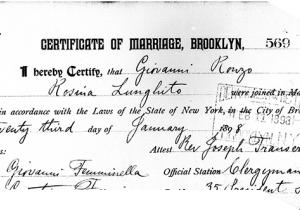 CERTIFICATE OF MARRIAGE, BROOKLYN, 569
I hereby Certify, that Giovanni Ronzo
Rosina Lunghito were joined in Ma
in accordance with the Laws of the State of New York, in the City of Bro
enty third day of January 1898
Attest Rev Joseph
Giovanni Femminella Official Station Clergyman
35 President